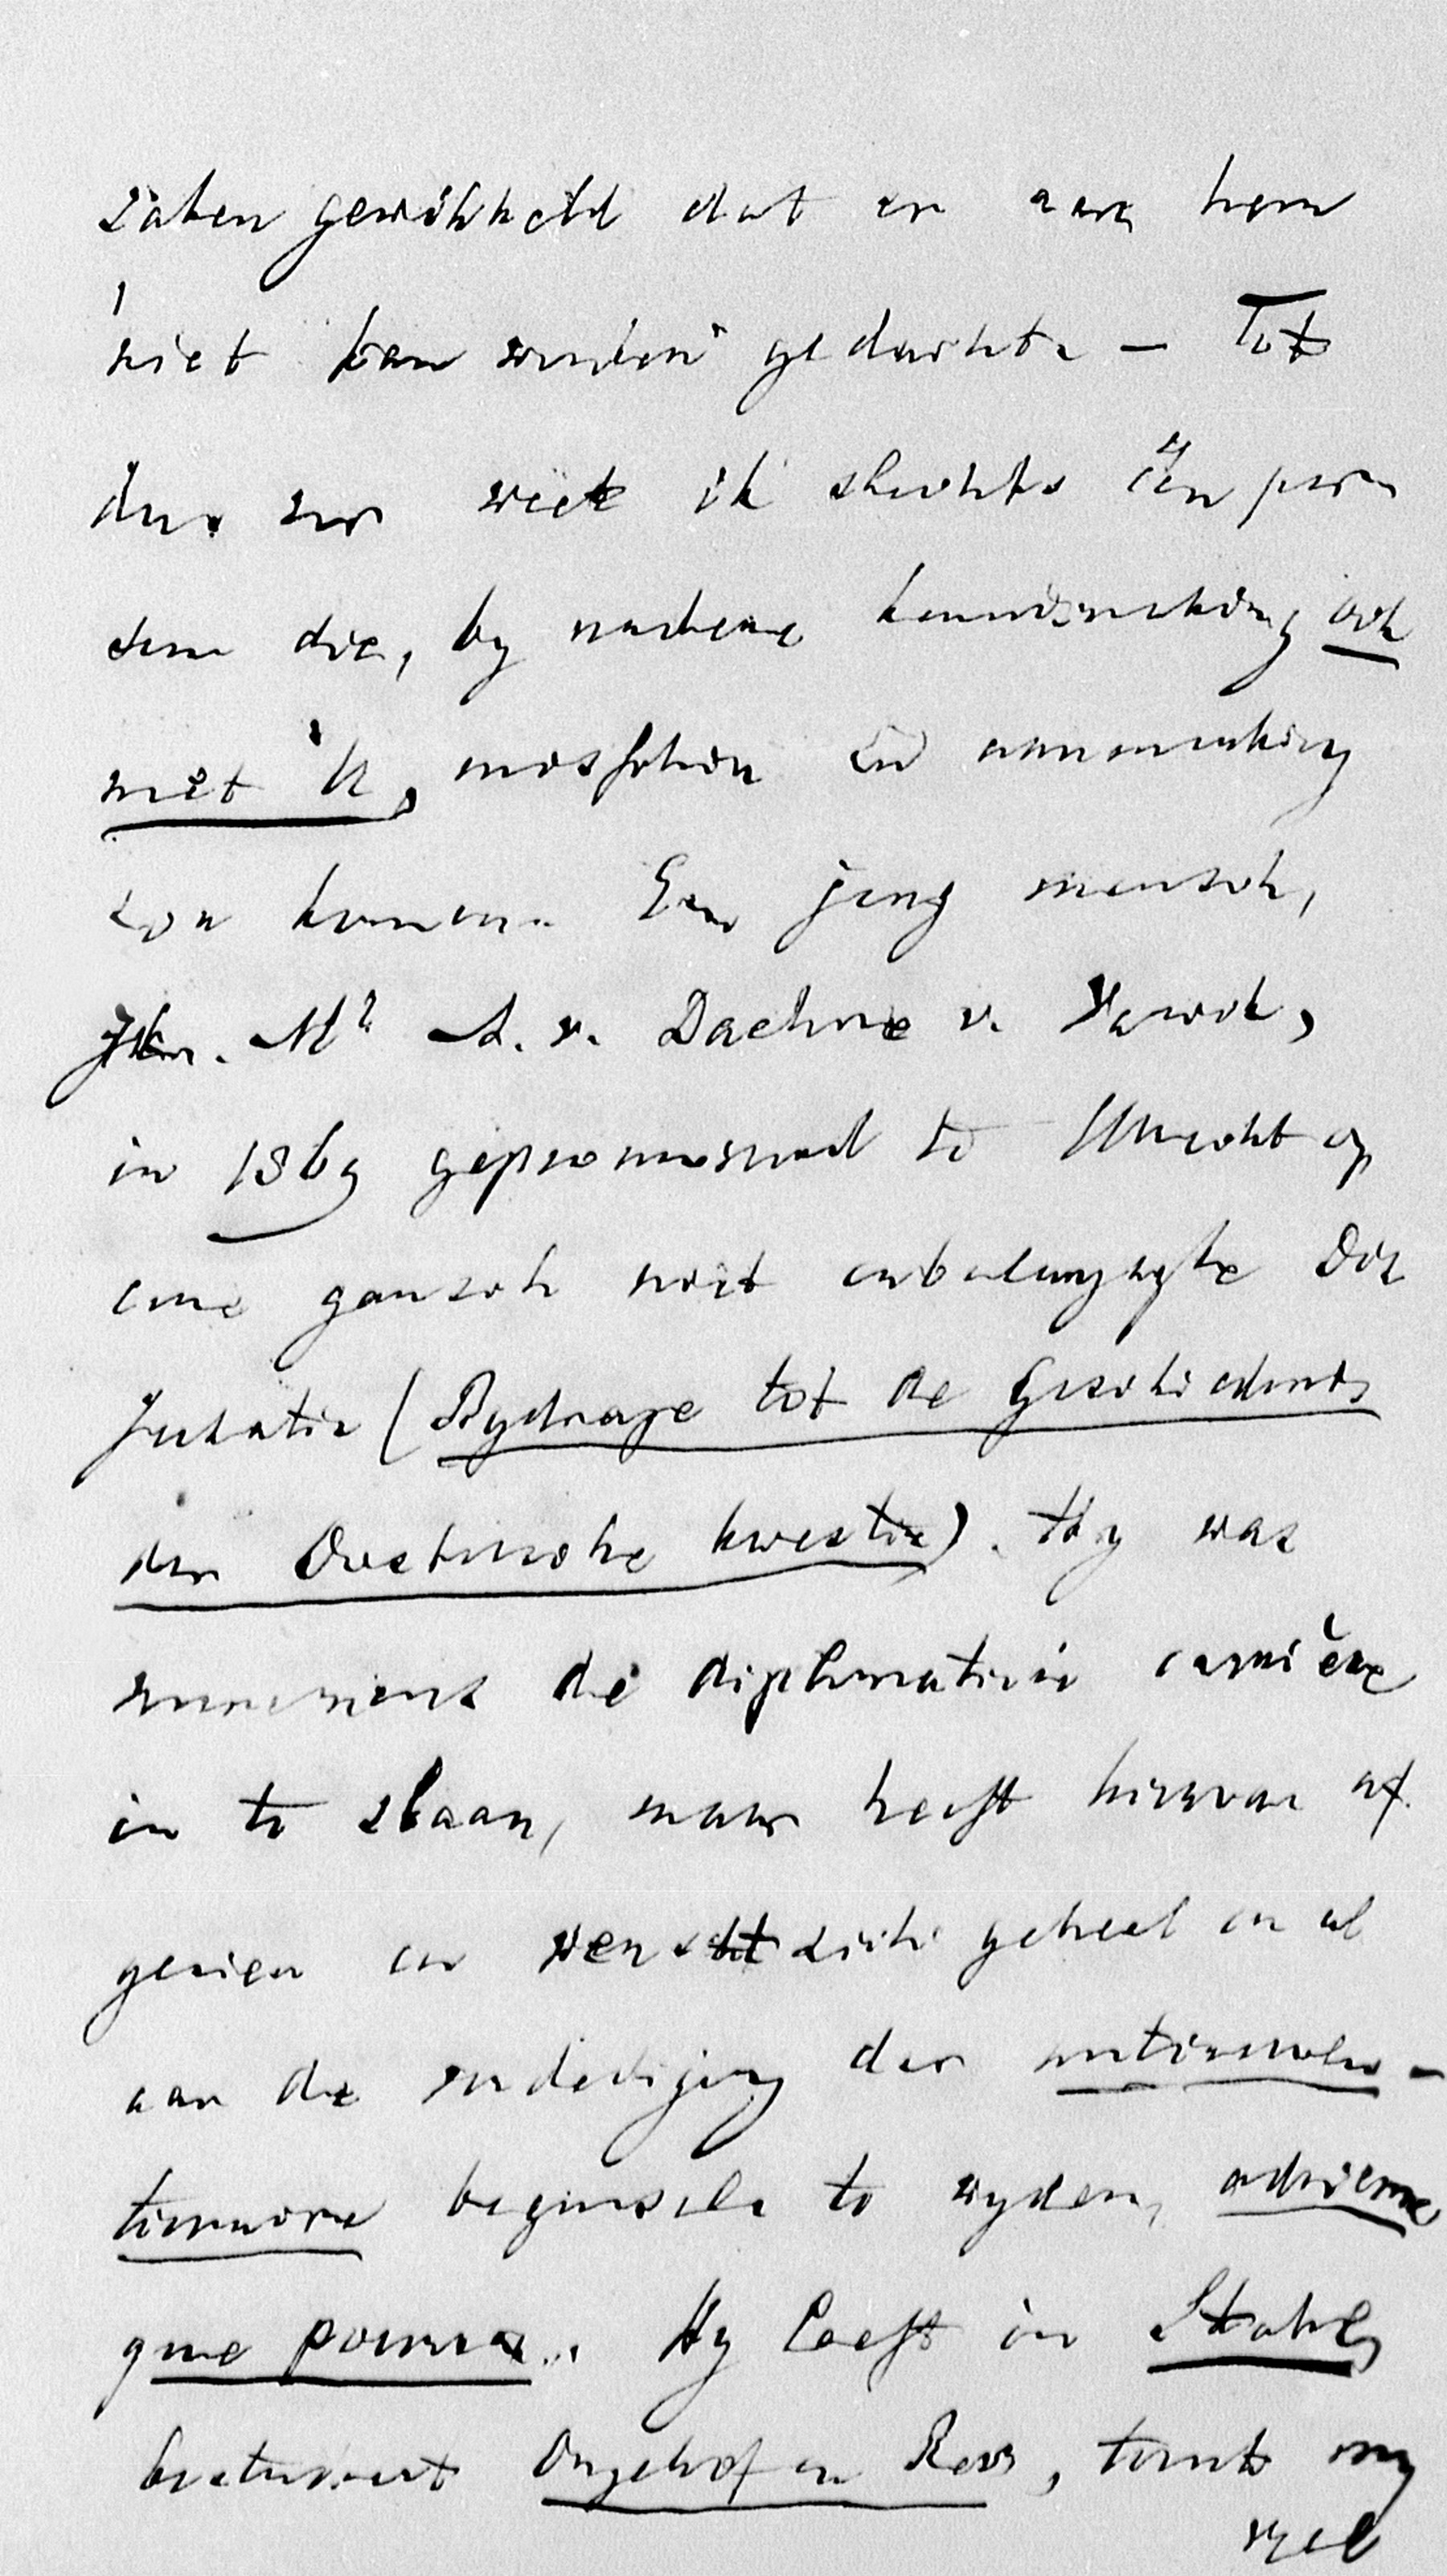 zaken gewikkeld dat er aan hem
niet kan worden gedacht. — Tot
dus ver weet ik slechts één per
soon die, by nadere kennismaking ook
met U, misschien in aanmerking
zou komen. Een jong mensch,
Jhr. Mr A. v. Daehne v. Varick,
in 1869 gepromoveerd te Utrecht op
eene gansch niet onbelangryke Dis
sertatie (Bydrage tot de Geschiedenis
der Oostersche kwestie). Hy was
voornemens de diplomatieke carrière
in te slaan, maar heeft hiervan af
gezien en wenscht zich geheel en al
aan de verdediging der antirevolu-
tionaire beginselen te wyden, advienne
que pourra... Hy leeft in Stahl,
bestudeert Ongeloof en Rev., toont my
veel